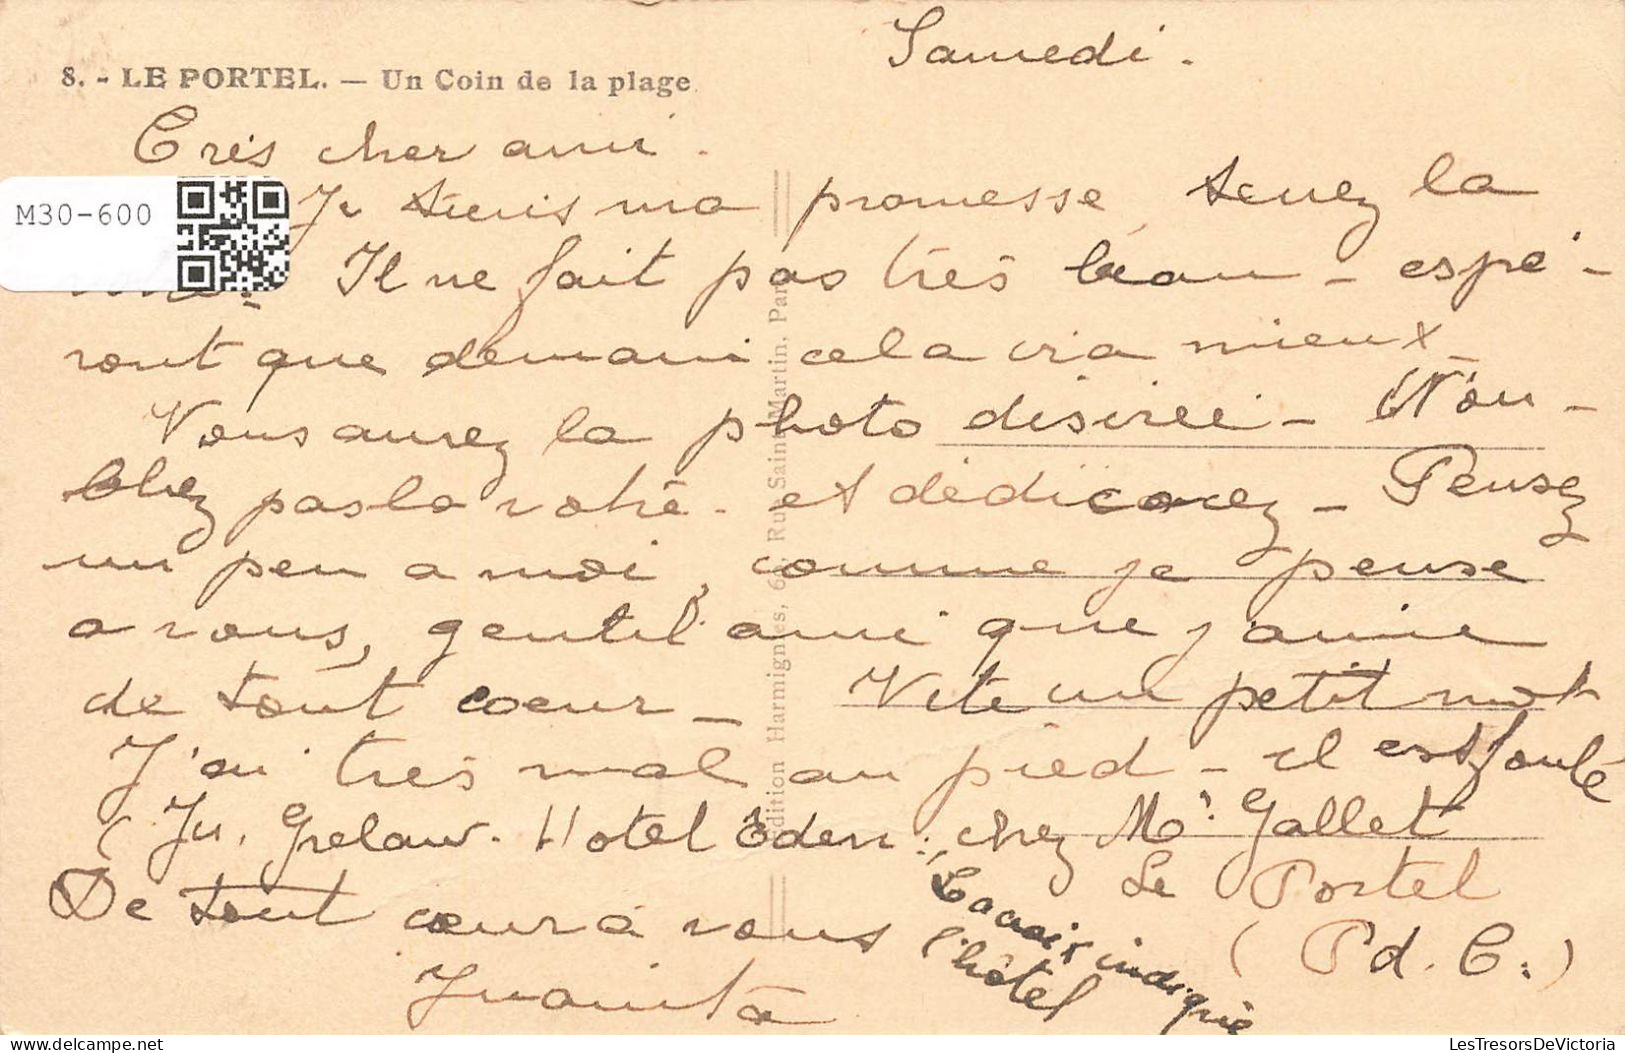 Samedi.
8. - LE PORTEL. — Un Coin de la plage
Très cher ami.
M30-600
Je tiens ma promesse, tenez la
Il ne fait pas très beau - espé-
ront que demain cela ira mieux -
Vous aurez la photo désirée - N'ou-
bliez pas la votre. et dédicacez - Pensez
un peu a moi, comme je pense
a vous, gentil ami que j'aime
de tout coeur - Vite un petit mot
J'ai très mal au pied - il est foulé
(Ju. Grelaw. Hotel Eden. chez Mr. Gallet
Le Portel
(P d. C.)
De tout coeur à vous
Juanita
La croix indique
l'hôtel
Edition Harmignies, Rue Saint-Martin, Paris
LesTresorsDeVictoria
delcampe.net